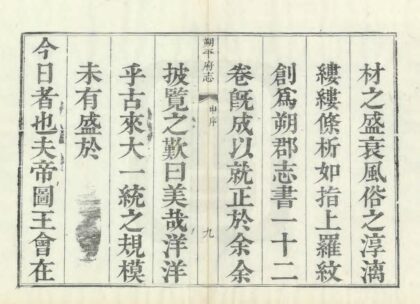 材之盛衰風俗之淳漓
縷縷條析如指上羅紋
創爲朔郡志書一十二
卷旣成以就正於余余
朔平府志
申序
九
披覽之歎曰美哉洋洋
乎古來大一統之規模
未有盛於
今日者也夫帝圖王會在